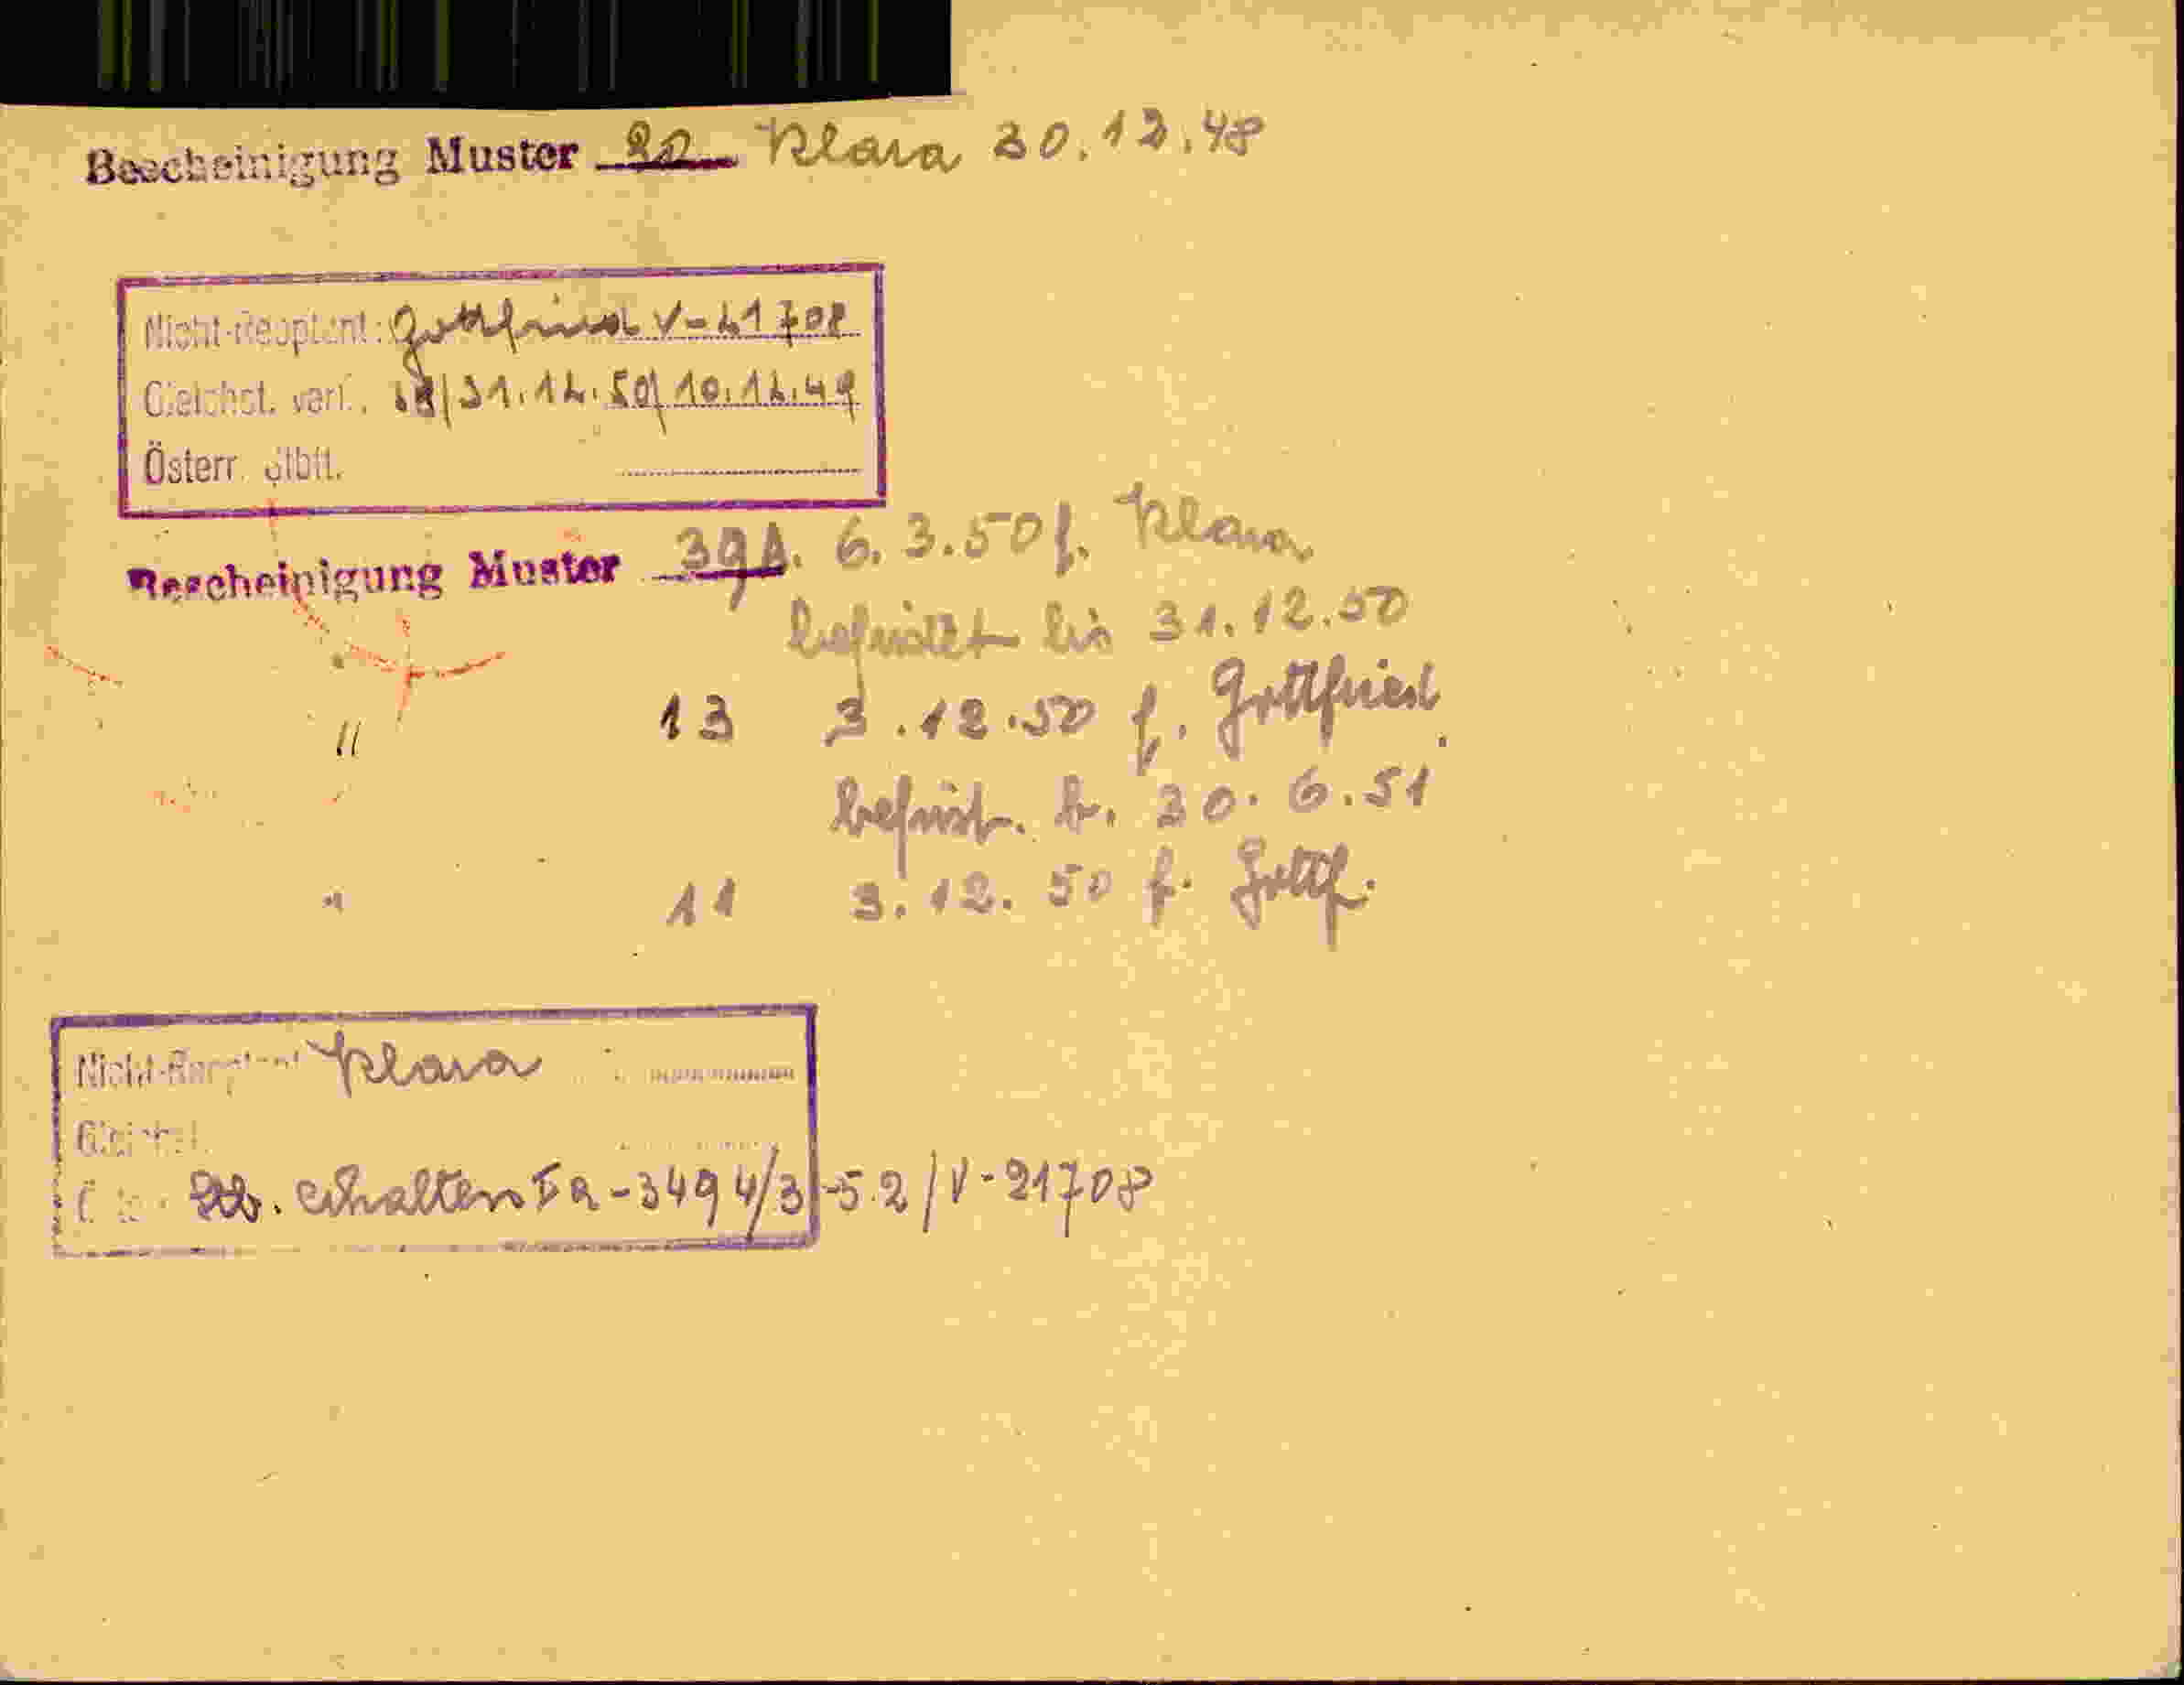 Bescheinigung Muster 20 Klara 30.12.48
Nicht-Reoptant: Gottfried V-21708
Gleichst. verl. 31.12.50/ 10.12.49
Österr. Stbft.
Bescheinigung Muster 39A. 6.3.50 f. Klara
befristet bis 31.12.50
" 13 3.12.50 f. Gottfried.
befrist. b. 30.6.51
" 11 3.12.50 f. Gottf.
Nicht-Reoptant Klara
Gleichst.
Stb. erhalten Ia-3494/3-52/V-21708